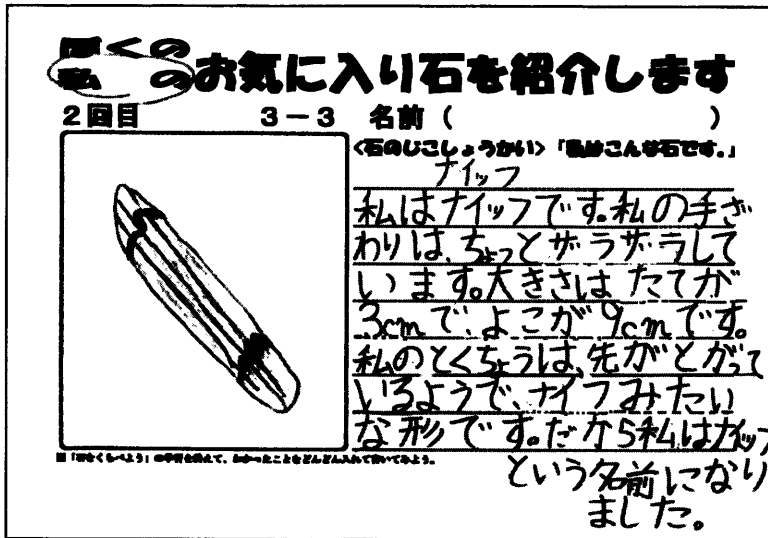 ぼくの
私のお気に入り石を紹介します
2回目 3-3 名前( )
<石のじこしょうかい>「私はこんな石です。」
ナイッフ
私はナイッフです。私の手ざ
わりは、ちょっとザラザラして
います。大きさは たてが
3cmで、よこが9cmです。
私のとくちょうは、先がとがって
いるようで、ナイフみたい
な形です。だから私はナイッフ
という名前になり
ました。